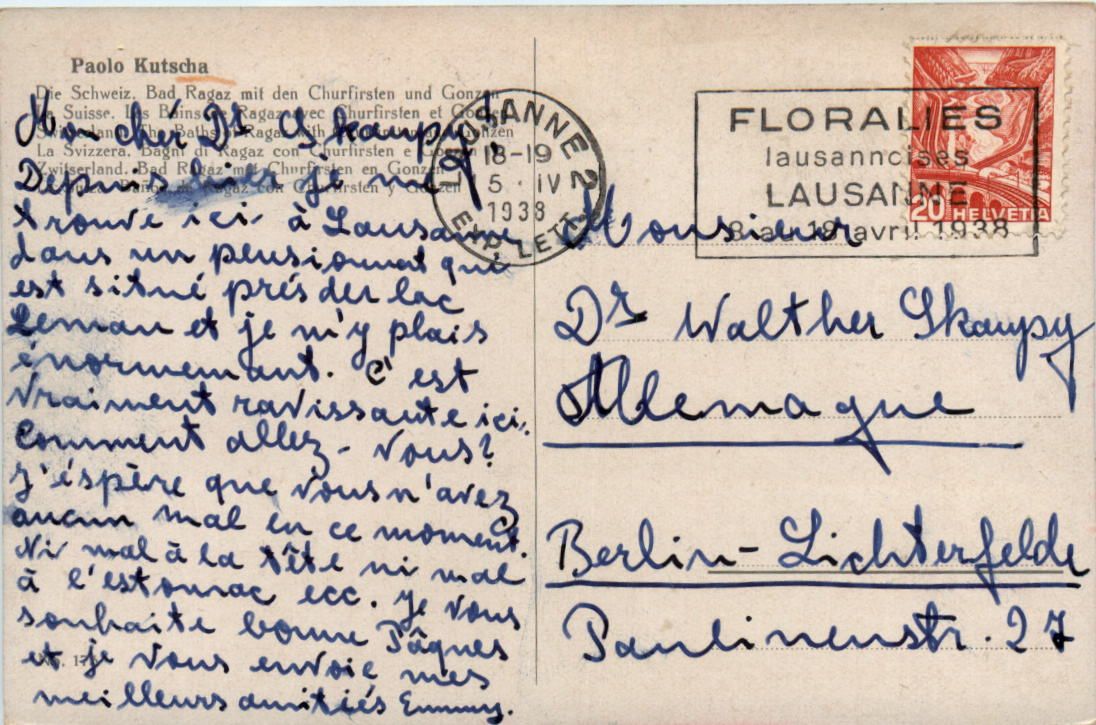 Paolo Kutscha
Die Schweiz. Bad Ragaz mit den Churfirsten und Gonzen
Suisse. Les Bains de Ragaz avec Churfirsten et Gonzen
The Baths of Ragaz with Gonzen
La Svizzera. Bagni di Ragaz con Churfirsten e Gonzen
Zwitserland. Bad Ragaz Churfirsten en Gonzen
Ragaz con Churfirsten y Gonzen
Mon cher Dr Skaupy,
Depuis hier je me
trouve ici à Lausanne
dans un pensionnat qui
est situé prés der lac
Leman et je m'y plais
énormemant. C'est
vraiment ravissante ici.
Comment allez-vous?
J'éspère que vous n'avez
aucun mal en ce moment.
Ni mal à la tête ni mal
à l'estomac ecc. Je vous
souhaite bonne Pâques
et je vous envoie mes
meilleurs amitiés Emmy.
LAUSANNE 2
18-19
5. IV
1938
EXP. LETT.
FLORALIES
lausannoises
LAUSANNE
8 au 18 avril 1938
20 HELVETIA
Monsieur
Dr Walther Skaupy
Allemagne
Berlin-Lichterfelde
Paulinenstr. 27